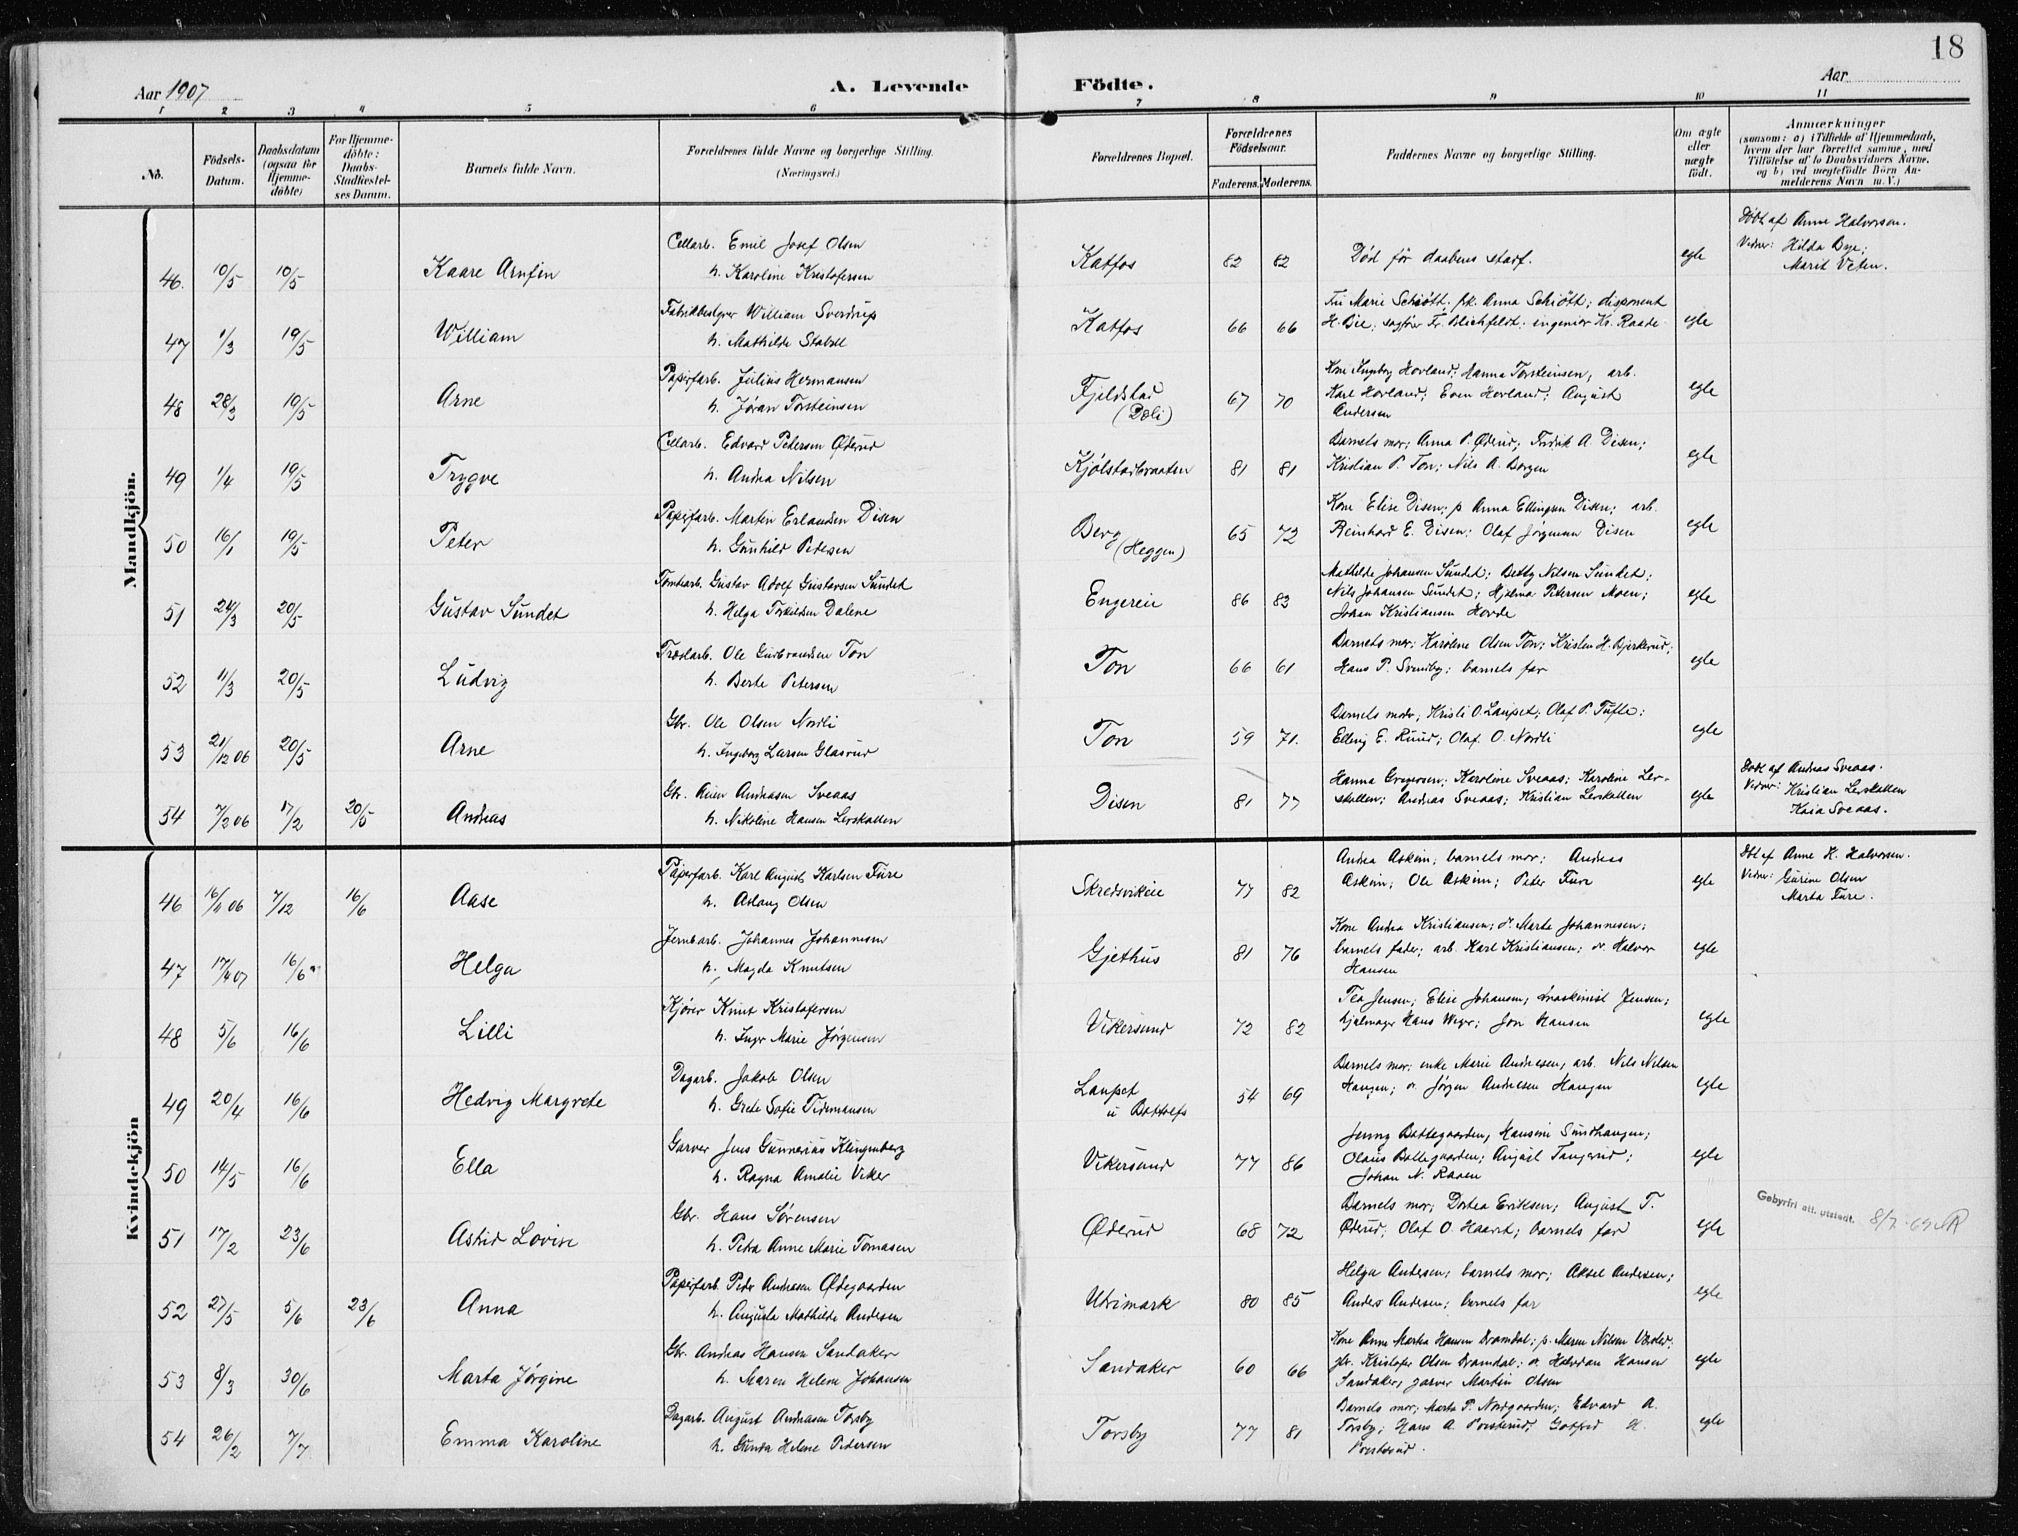 18
Aar 1907
A. Levende Födte.
Aar
1 2 3 4 5 6 7 8 9 10 11
No.
Födsels-Datum.
Daabsdatum (ogsaa for Hjemme-döbte)
For Hjemme-döbte: Daabs-Stadfæstel-ses Datum.
Barnets fulde Navn.
Forældrenes fulde Navne og borgerlige Stilling. (Næringsvei.)
Forældrenes Bopæl.
Forældrenes Födselsaar.
Faderens. Moderens.
Faddernes Navne og borgerlige Stilling.
Om ægte eller uægte födt.
Anmærkninger
(saasom: a) i Tilfælde af Hjemmedaab,
hvem der har forrettet samme, med
Tilföielse af to Daabsvidners Navne.
og b) ved uegtefödte Börn An-
melderens Navn m. V.)
Mandkjön.
46. 10/5 10/5 Kaare Arnfin
Cellarb. Emil Josef Olsen
h. Karoline Kristofersen
Katfos 82 82 Död för daabens stadf. egte
Döbt af Anne Halvorsen.
Vidner: Hilda Bye;
Marit Veten.
47 1/3 19/5 William
Fabrikbestyrer William Sverdrup
h. Mathilde Stabell
Katfos 66 66
Fru Marie Schiøtt; frk. Anna Schiøtt; disponent
H. Bie; sagfører Fr. Blichfeldt; ingeniør Kr. Raade egte
48 28/3 19/5 Arne
Papirfarb. Julius Hermansen
h. Jøran Torsteinsen
Fjeldstad (Dæli) 67 70
Kone Ingeborg Hovland; Hanna Torsteinsen; arb.
Karl Hovland; Even Hovland; August
Andersen egte
49 1/4 19/5 Trygve
Cellarb. Edvard Petersen Øderud
h. Andrea Nilsen
Kjølstadbraaten 81 81
Barnets mor; Anna P. Øderud; Fredrik A. Disen;
Kristian P. Ton; Nils A. Borgen egte
50 16/1 19/5 Peter
Papirfarb. Martin Erlandsen Disen
h. Gunhild Petersen
Berg (Heggen) 65 72
Kone Elise Disen; p. Anna Ellingsen Disen; arb.
Reinhard E. Disen; Olaf Jørgensen Disen egte
51 24/3 20/5 Gustav Sundet
Tomtearb. Gustav Adolf Gustavsen Sundet
h. Helga Torkildsen Dalene
Engereie 86 83
Mathilde Johansen Sundet; Betty Nilsen Sundet;
Nils Johansen Sundet; Hjelma Petersen Moen;
Johan Kristiansen Hovde egte
52 11/3 20/5 Ludvig
Træslarb. Ole Gudbrandsen Ton
h. Berte Petersen
Ton 66 61
Barnets mor; Karoline Olsen Ton; Kristen H. Bjerkerud;
Hans P. Svenby; barnets far egte
53 21/12 06 20/5 Arne
Gbr. Ole Olsen Nordli
h. Ingeborg Larsen Glasrud
Ton 59 71.
Barnets moder; Kristi O. Laupet; Olaf P. Tufte;
Elling E. Ruud; Olaf O. Nordli egte
54 7/2 06 17/2 20/5 Andreas
Gbr. Andreasen Sveaas
h. Nikoline Hansen Lerskallen
Disen 81 77
Hanna Gregersen; Karoline Sveaas; Karoline Ler-
skallen; Andreas Sveaas; Kristian Lerskallen egte
Döbt af Andreas Sveaas.
Vidner: Kristian Lerskallen
Kaia Sveaas.
Kvindekjön
46 16/11 06 7/12 16/6 Aase
Papirfarb. Karl August Karlsen Fure
h. Aslaug Olsen
Skredsvikeie 77 82
Andrea Askim; barnets mor; Andreas
Askim; Ole Askim; Peter Fure egte
Döbt af Anne K. Halvorsen.
Vidner: Gurine Olsen
Marta Fure.
47 17/4 07 16/6 Helga
Jernbarb. Johannes Johannesen
h. Magda Knutsen
Gjethus 81 76
Kone Andrea Kristiansen; Marta Johannesen;
barnets fader; arb. Karl Kristiansen; Halvor
Hansen egte
48 5/6 16/6 Lilli
Kjører Knut Kristofersen
h. Inger Marie Jørgensen
Vikersund 72 82
Tea Jensen; Elise Johansen; maskinist Jensen;
hjulmager Hans Weger; Jon Hansen egte
49 20/4 16/6 Hedvig Margrete
Dagarb. Jakob Olsen
h. Grete Sofie Tidemansen
Laupet u. Bottolfs 54 69
Barnets mor; enke Marie Andresen; arb. Nils Nilsen
Haugen; Jørgen Andresen Haugen egte
50 14/5 16/6 Ella
Garver Jens Gunnerius Klingenberg
h. Ragna Amalie Viker
Vikersund 77 86
Jenny Battegaarden; Hansine Sundhaugen;
Olaus Battegaarden; August Tangerud;
Johan N. Raaen egte
51 17/2 23/6 Astrid Lovise
Gbr. Hans Sørensen
h. Petra Anne Marie Tomasen
Øderud 68 72
Barnets mor; Dortea Eriksen; August T.
Øderud; Olaf O. Haavit; barnets far egte
Gebyrfri att. utstedt. 8/7-69
52 27/5 5/6 23/6 Anna
Papirfarb. Peder Andreasen Ødegaarden
h. Augusta Mathilde Andersen
Udrimark 80 85
Helga Andersen; barnets mor; Aksel Andersen;
Anders Andersen; barnets far egte
53 8/3 30/6 Marta Jørgine
Gbr. Andreas Hansen Sandaker
h. Maren Helene Johansen
Sandaker 60 66
Kone Anne Martea Hansen Dramdal; p. Maren Nilsen
gbr. Kristofer Olsen Dramdal; Halvdan Hansen
Sandaker; garver Martin Olsen egte
54 26/2 7/7 Emma Karoline
Dagarb. August Andreasen Torsby
h. Gunda Helene Pedersen
Torsby 77 81
Barnets mor; Marta P. Nordgaarden; Edvard A.
Torsby; Hans A. Porsterud; Gotfred H.
Porsterud. egte